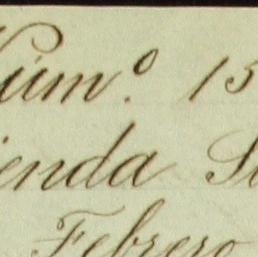 Núm.º 15
ienda S
Febrero